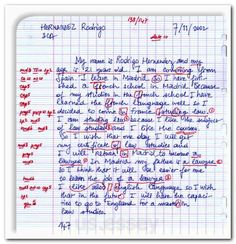 HERNANDEZ Rodrigo 138/147 7/11/2002
My name is Rodrigo Hernandez and my
age is 21 years old. I am coming from
Spain. I leave in Madrid. So I have
shed a french school in Madrid. Because
of my studies in the french school, I have
learned the french language well so I
decided to come to France studing law.
I am studing because I like the subject
of law studies and I like the
So I wish that one day I will
my certificate of law studies and
I will return to Madrid to become a
lawyer. In Madrid my father is a lawyer
so I think that it will be easier for me
to learn the job of a lawyer.
I like also english language, so I wish
that in the future I will have the capaci-
ties to go to England for a in
law studies.
147